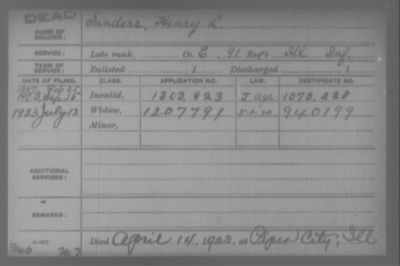 DEAD
NAME OF SOLDIER: Sanders, Henry L
SERVICE: Late rank, Co. E, 91 Reg't Ill Inf.
TERM OF SERVICE: Enlisted , 1 Discharged , 1
DATE OF FILING. CLASS. APPLICATION NO. LAW. CERTIFICATE NO.
Invalid, 1303.823 1073.228
1923 July 13 Widow, 1207791 940199
Minor,
ADDITIONAL SERVICES:
REMARKS:
Died April 14, 1923, at City, Ill